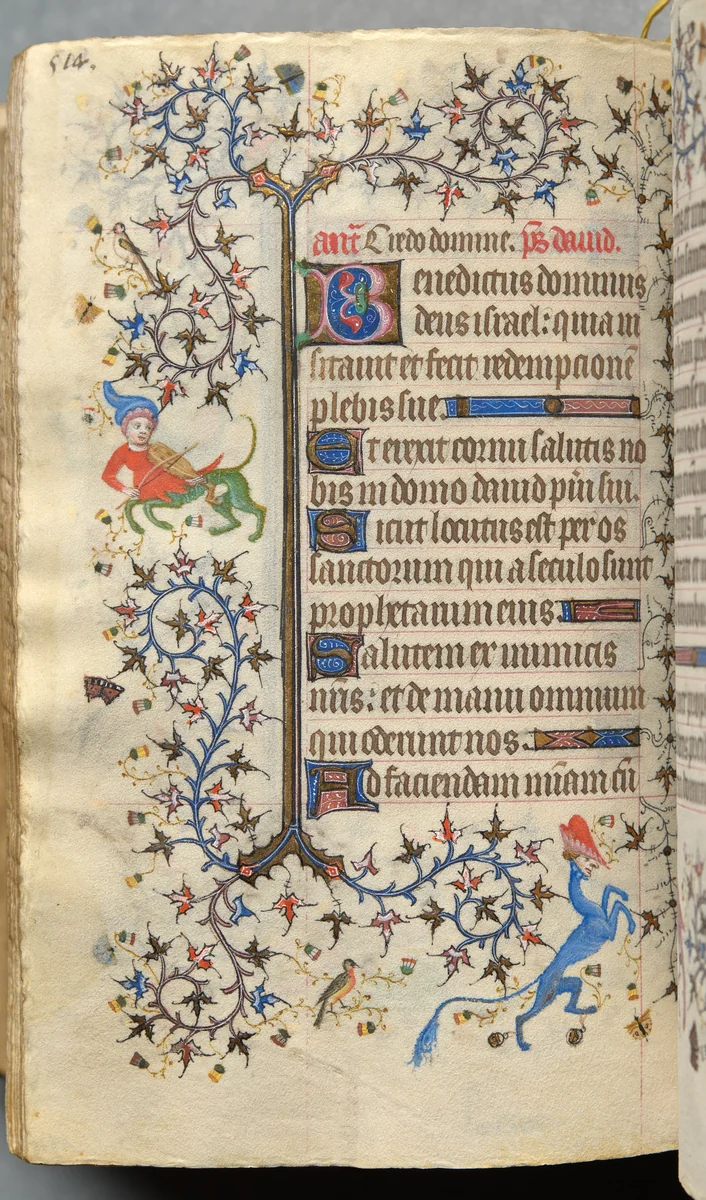 514.
añt Credo domine. ps dauid.
Benedictus dominus
deus israel: quia ui
sitauit et fecit redempcionē
plebis sue.
Et erexit cornu salutis no
bis in domo dauid pūi sui.
Sicut locutus est per os
sanctorum qui a seculo sunt
prophetarum eius.
Salutem ex inimicis
nr̄is: et de manu omnium
qui oderunt nos.
Ad faciendam mīam cū